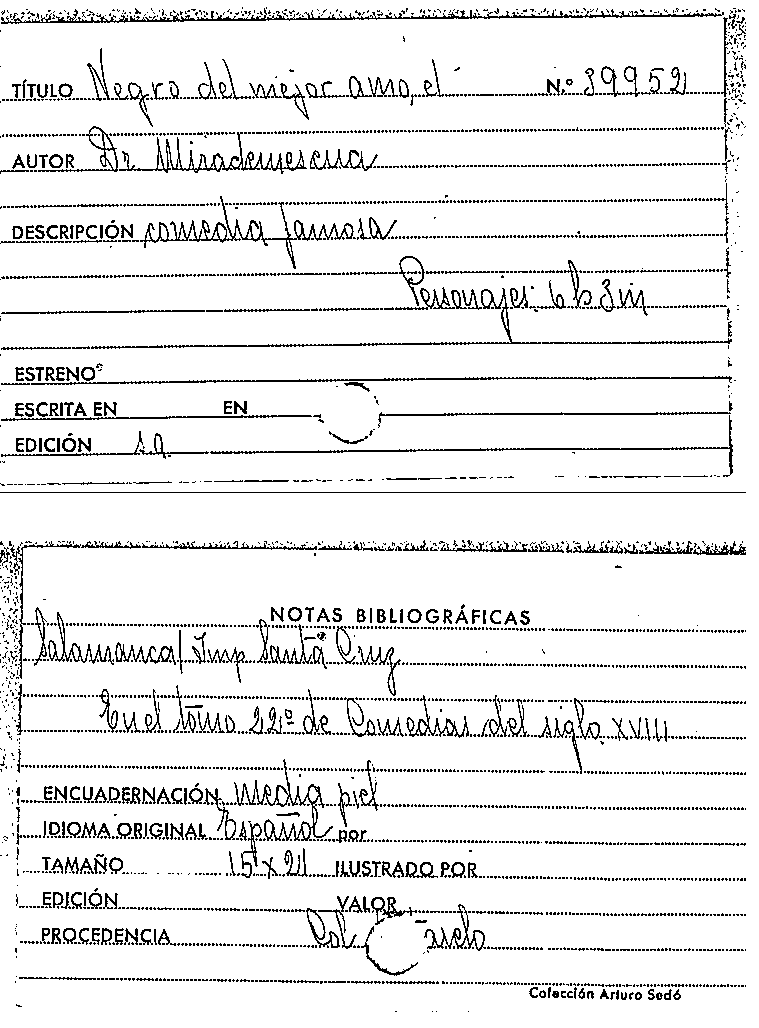 TÍTULO Negro del mejor amo, el N.º 39952
AUTOR Dr. Mirademescua
DESCRIPCIÓN comedia famosa
Personajes: 6 h 3 m
ESTRENO
ESCRITA EN EN
EDICIÓN s.a.
NOTAS BIBLIOGRÁFICAS
Salamanca / Imp Santa Cruz
En el tomo 22º de Comedias del siglo XVIII
ENCUADERNACIÓN media piel
IDIOMA ORIGINAL Español por
TAMAÑO 15 x 21 ILUSTRADO POR
EDICIÓN VALOR
PROCEDENCIA Col
Colección Arturo Sedó